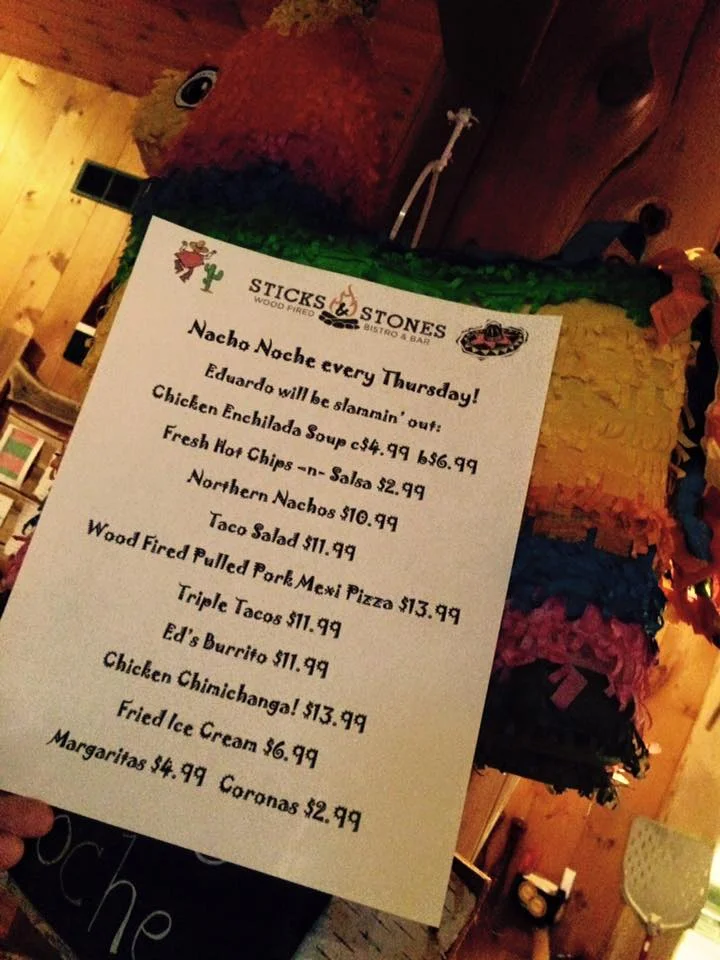 STICKS & STONES
WOOD FIRED BISTRO & BAR
Nacho Noche every Thursday!
Eduardo will be slammin' out:
Chicken Enchilada Soup c$4.99 b$6.99
Fresh Hot Chips -n- Salsa $2.99
Northern Nachos $10.99
Taco Salad $11.99
Wood Fired Pulled Pork Mexi Pizza $13.99
Triple Tacos $11.99
Ed's Burrito $11.99
Chicken Chimichanga! $13.99
Fried Ice Cream $6.99
Margaritas $4.99 Coronas $2.99
oche